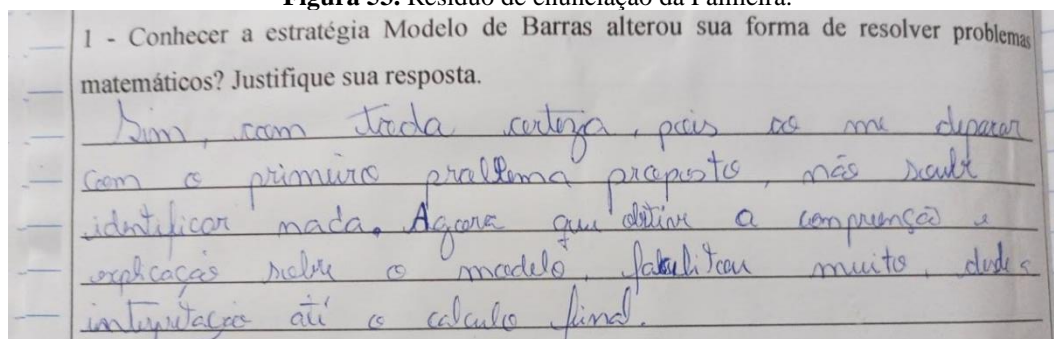 Figura 33. Resíduo de enunciação da Palmeira.
1 - Conhecer a estratégia Modelo de Barras alterou sua forma de resolver problemas
matemáticos? Justifique sua resposta.
Sim, com toda certeza, pois ao me deparar
com o primeiro problema proposto, não soube
identificar nada. Agora que obtive a compreensão e
explicação sobre o modelo, facilitou muito, desde a
interpretação até o calculo final.